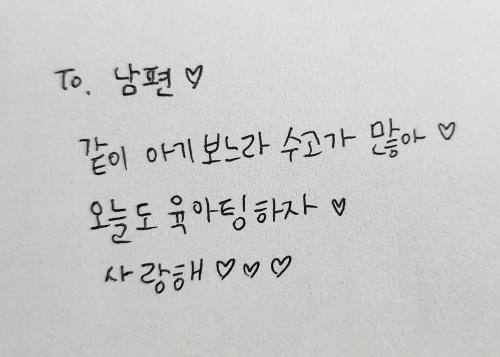 To. 남편 ♡
같이 아기보느라 수고가 많아 ♡
오늘도 육아팅하자 ♡
사랑해 ♡♡♡